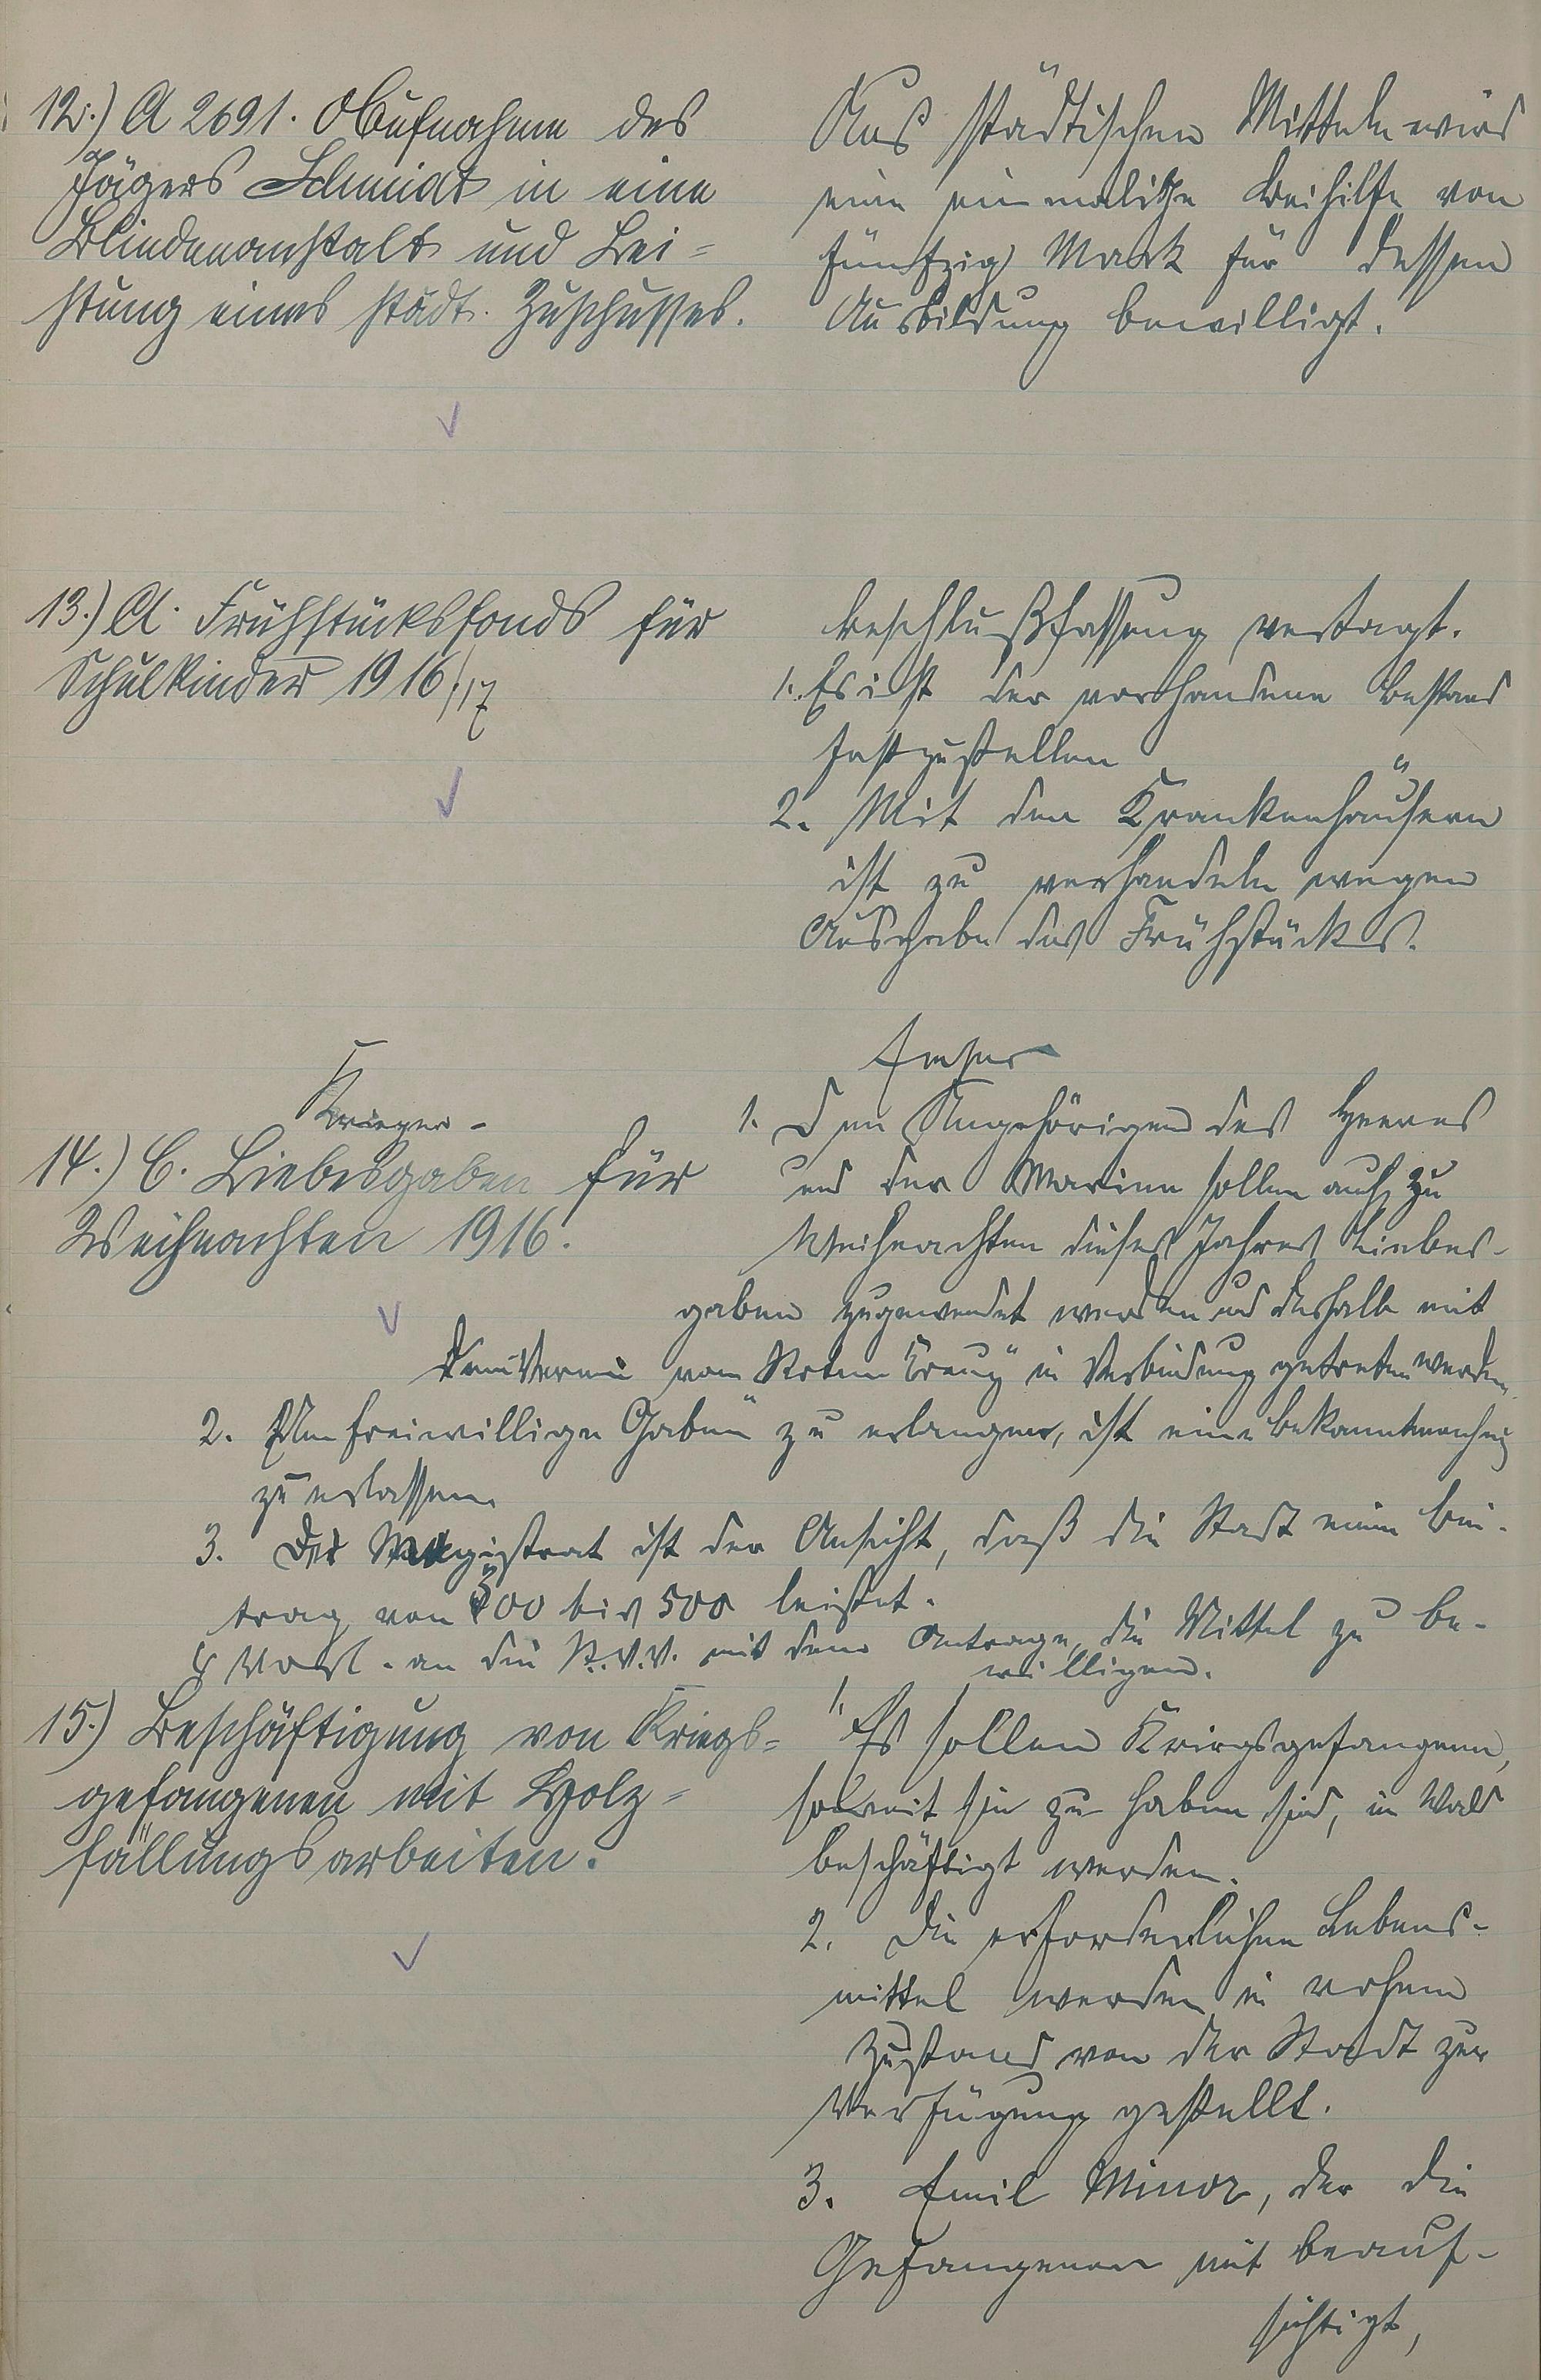 12.) A 2691. Aufnahme des
Jägers Schmidt in eine
Blindenanstalt und Lei=
stung eines städt. Zuschusses.
Aus städtischen Mitteln wird
eine einmalige Beihilfe von
fünfzig Mark für dessen
Ausbildung bewilligt.
13.) A. Frühstücksfonds für
Schulkinder 1916/17
Beschlußfassung vertagt.
1. Es ist der vorhandene Bestand
festzustellen
2. Mit den Krankenhäusern
ist zu verhandeln wegen
Ausgabe des Frühstücks.
Krieger-
14.) C. Liebesgaben für
Weihnachten 1916.
1. Den Angehörigen des Heeres
und der Marine sollen auch zu
Weihnachten dieses Jahres Liebes-
gaben zugewendet werden und deshalb mit
dem Verein vom Roten Kreuz in Verbindung getreten werden.
2. Um freiwillige Gaben zu erlangen, ist eine Bekanntmachung
zu erlassen.
3. Der Magistrat ist der Ansicht, daß die Stadt einen Bei-
trag von 300 bis 500 leistet.
4 Vorl. an die St.V.V. mit dem Antrage, die Mittel zu be-
willigen.
15.) Beschäftigung von Kriegs=
gefangenen mit Holz=
fällungsarbeiten.
1. Es sollen Kriegsgefangene,
soweit sie zu haben sind, im Wald
beschäftigt werden.
2. Die erforderlichen Lebens-
mittel werden in rohem
Zustand von der Stadt zur
Verfügung gestellt.
3. Emil Minor, der die
Gefangenen mit beauf-
sichtigt,